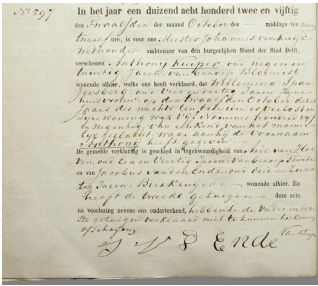 No 597
In het jaar een duizend acht honderd twee en vijftig
den Twaalfden der maand October des middags ten
twaalf ure, is voor ons Meester Johannes
Wethouder ambtenaar van den burgerlijken Stand der Stad Delft,
verschenen Anthony Kuijper oud negen en
twintig Jaren, van beroep
wonende alhier, welke ons heeft verklaard, dat Willemina
oud Vier en veertig Jaren Zijne
huisvrouw op den twaalf October dezes
Jaars des nachts ten een ure is verlost in
Zijne woning wijk Vijf Nommer honderd vijf
en negentig, van een kind van het mannelijk
geslacht, waaraan hij de voornaam
Anthonij heeft gegeven
De gemelde verklaring is geschied in tegenwoordigheid van
oud een en Veertig Jaren, van beroep
en van Jacobus van den Ende oud
tig Jaren, wonende alhier. En
heeft de tweede getuige deze acte
na voorlezing nevens ons onderteekend, hebbende de Vader en
getuige verklaard niet te kunnen
of schrijven
J V D Ende